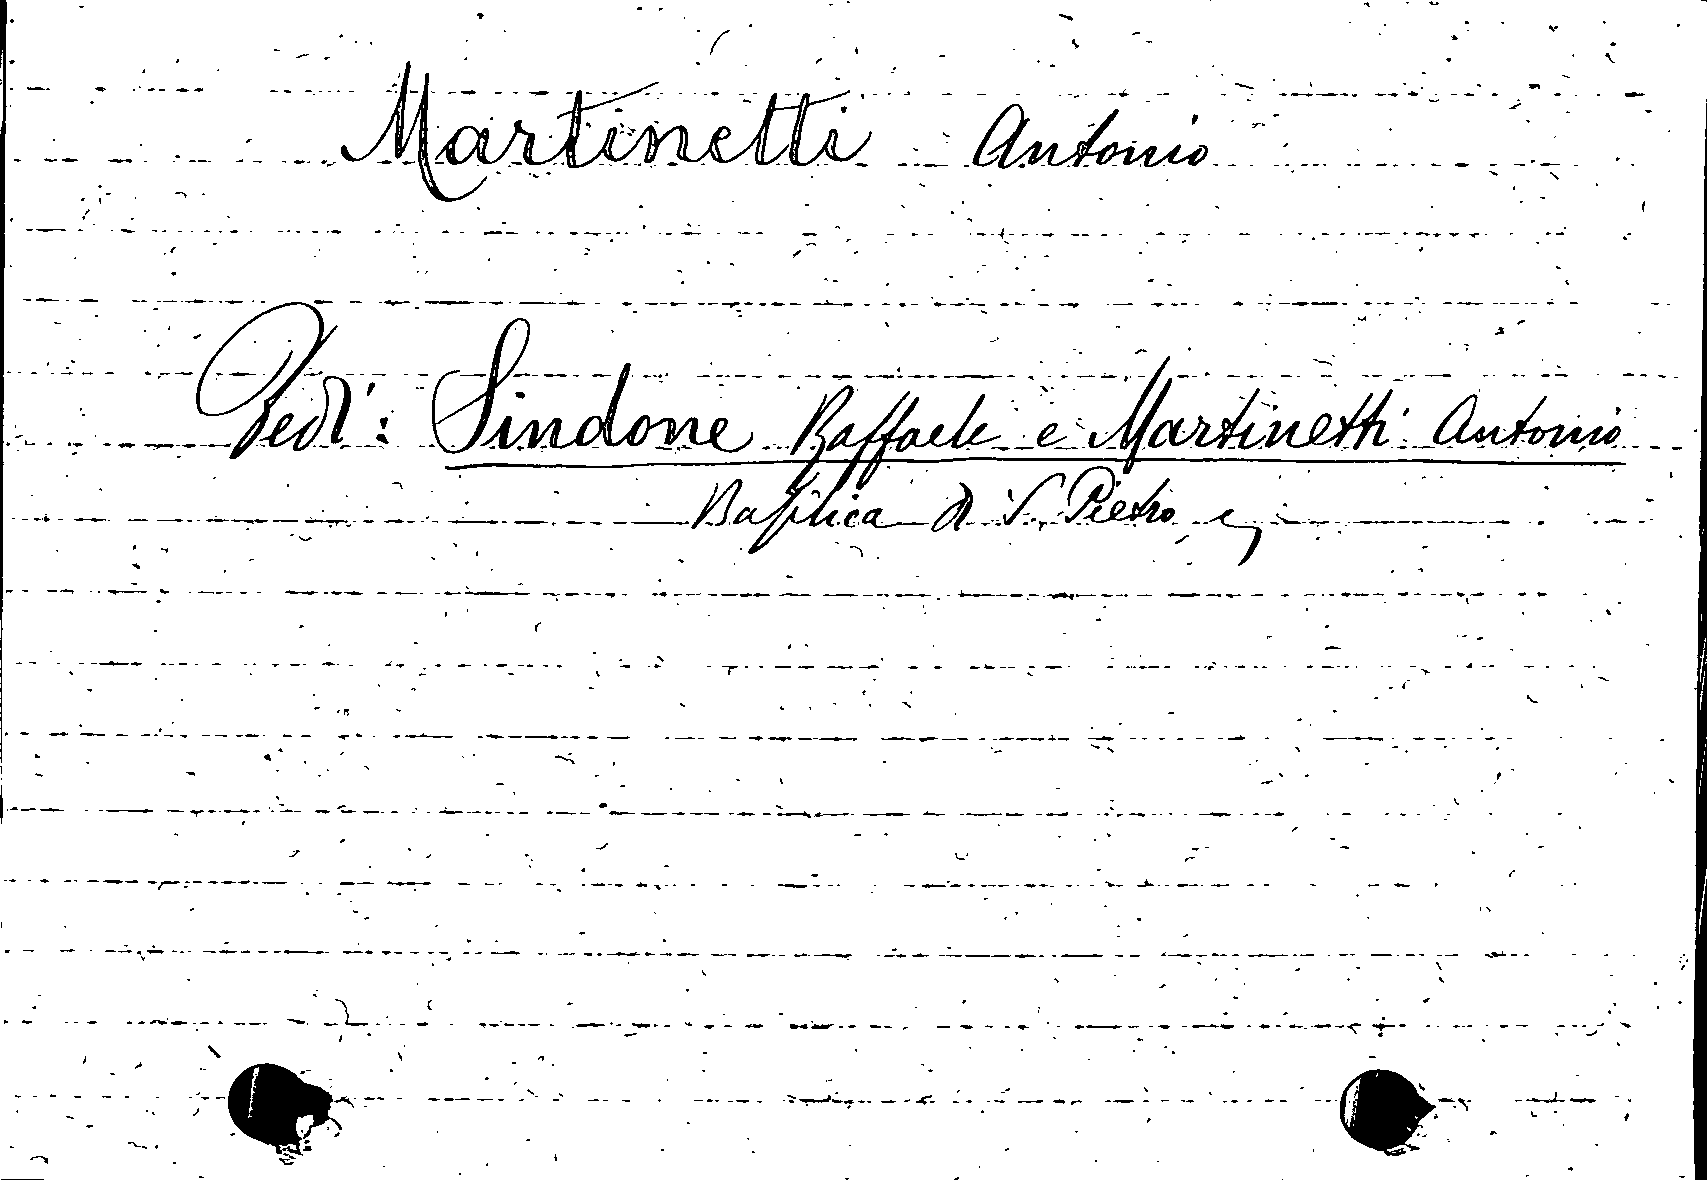 Martinetti Antonio
Vedi: Sindone Raffaele e Martinetti Antonio
Basilica di S. Pietro